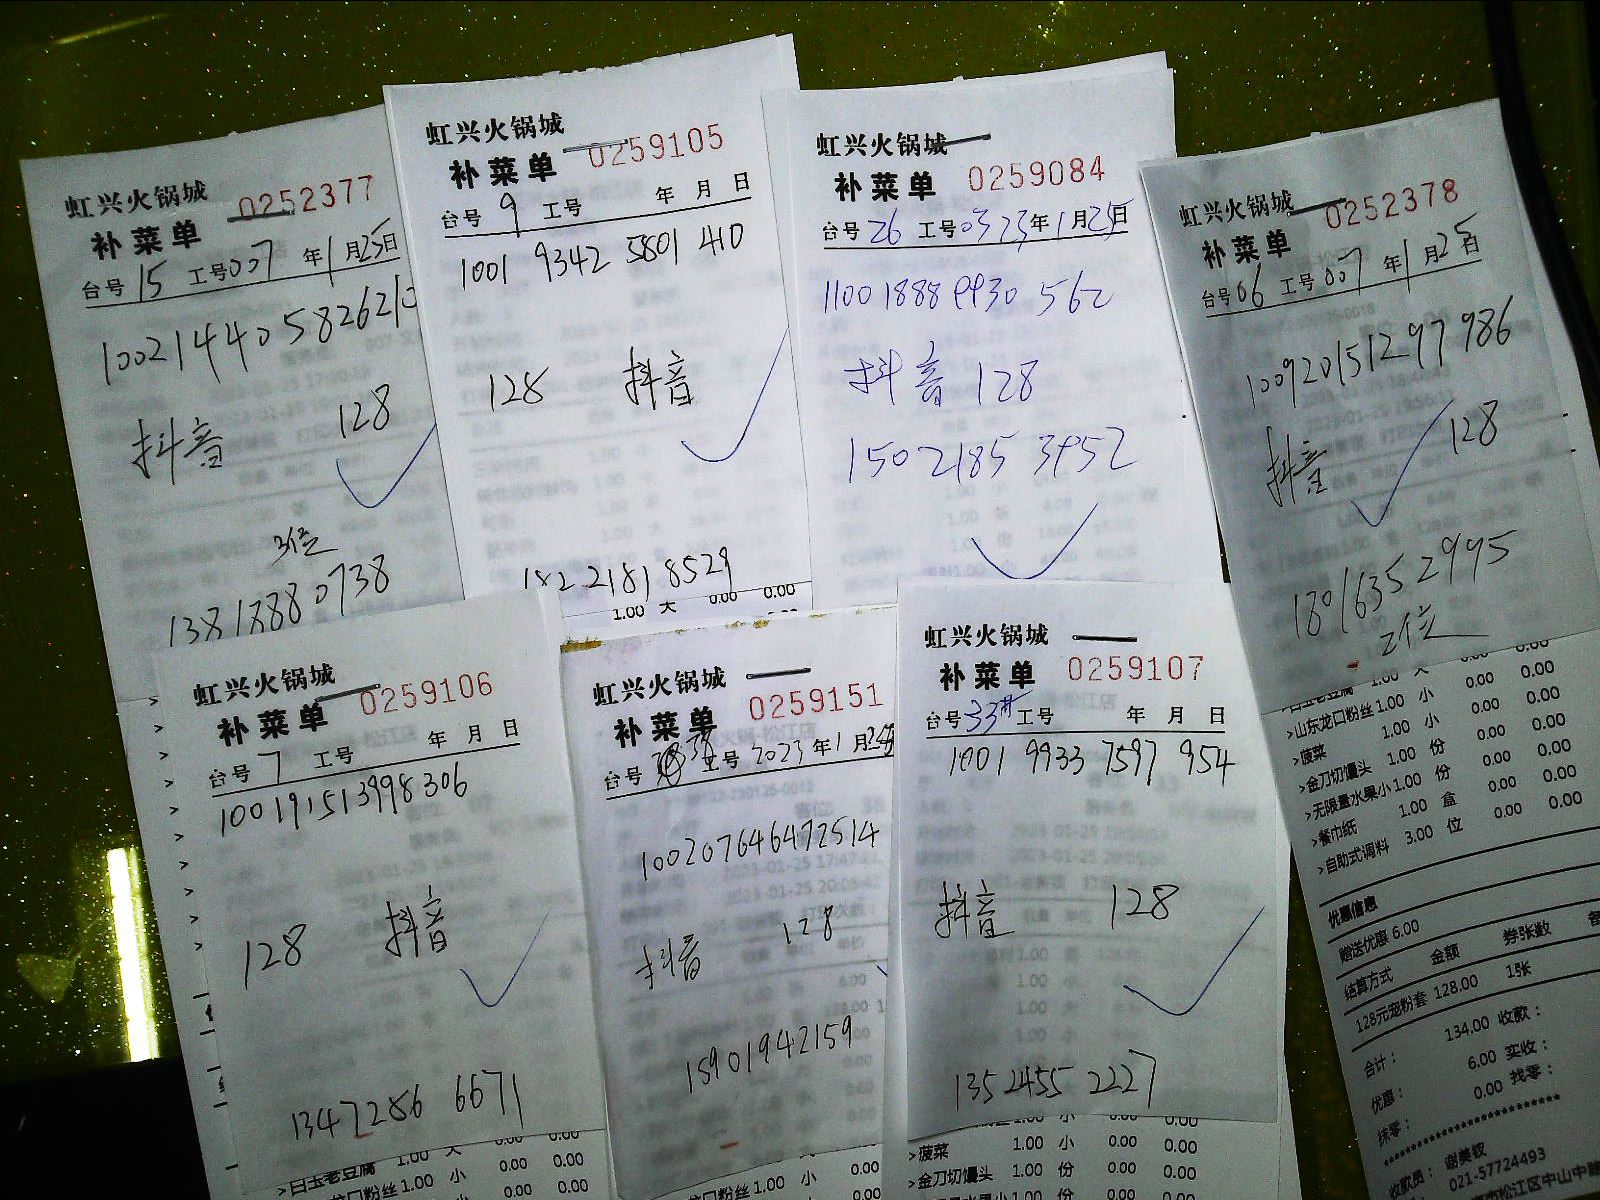 虹兴火锅城
补菜单 0252377
台号 15 工号007 年1月25日
100214405826210
抖音 128
3位
13818880738
虹兴火锅城
补菜单 0259105
台号 9 工号 年 月 日
1001 9342 5801 410
128 抖音
182 2181 8529
1.00 大 0.00 0.00
虹兴火锅城
补菜单 0259084
台号26 工号 0323年1月25日
11001888 9930 562
抖音 128
1502185 3952
虹兴火锅城
补菜单 0252378
台号06 工号007 年1月25日
100920151297986
抖音 128
18016352995
2位
虹兴火锅城
补菜单 0259106
台号 7 工号 年 月 日
100191513998306
128 抖音
1347286 6671
>白玉老豆腐 1.00 大 0.00 0.00
口粉丝1.00 小 0.00 0.00
虹兴火锅城
补菜单 0259151
台号 工号 2023年1月25日
100207646472514
抖音 128
15901942159
虹兴火锅城
补菜单 0259107
台号33# 工号 年 月 日
1001 9933 7597 954
抖音 128
1352455 2227
>菠菜 1.00 小 0.00 0.00
>金刀切馒头 1.00 份 0.00 0.00
>山东龙口粉丝1.00 小 0.00 0.00
>菠菜 1.00 小 0.00 0.00
>金刀切馒头 1.00 份 0.00 0.00
>无限量水果小1.00 份 0.00 0.00
>餐巾纸 1.00 盒 0.00 0.00
>自助式调料 3.00 位 0.00 0.00
优惠信息
赠送优惠 6.00
结算方式 金额 券张数
128元宠粉套 128.00 1张
合计： 134.00 收款：
优惠： 6.00 实收：
抹零： 0.00 找零：
************************
收款员： 谢美权
021-57724493
松江区中山中路